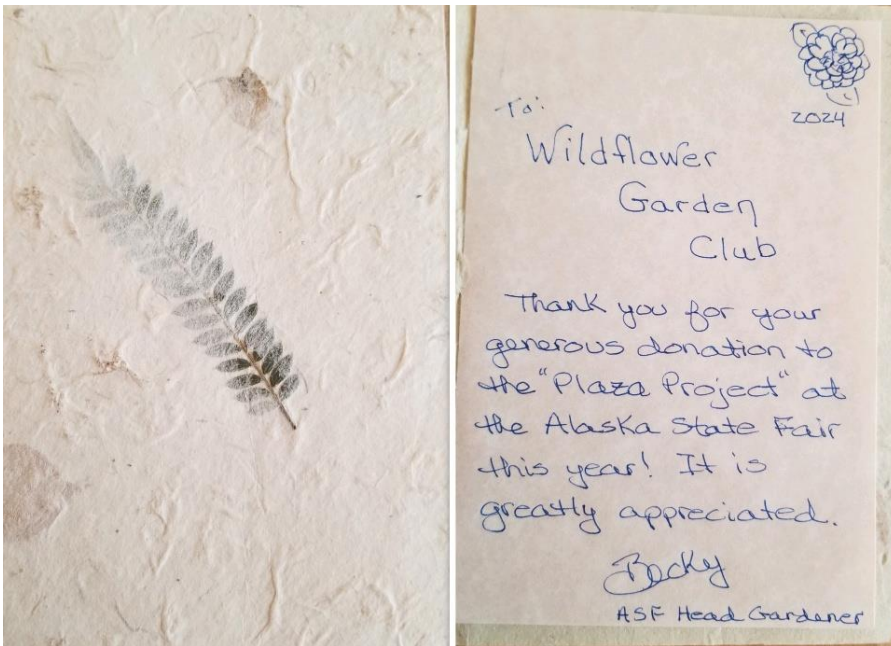 2024
To:
Wildflower
Garden
Club
Thank you for your
generous donation to
the "Plaza Project" at
the Alaska State Fair
this year! It is
greatly appreciated.
Becky
ASF Head Gardener